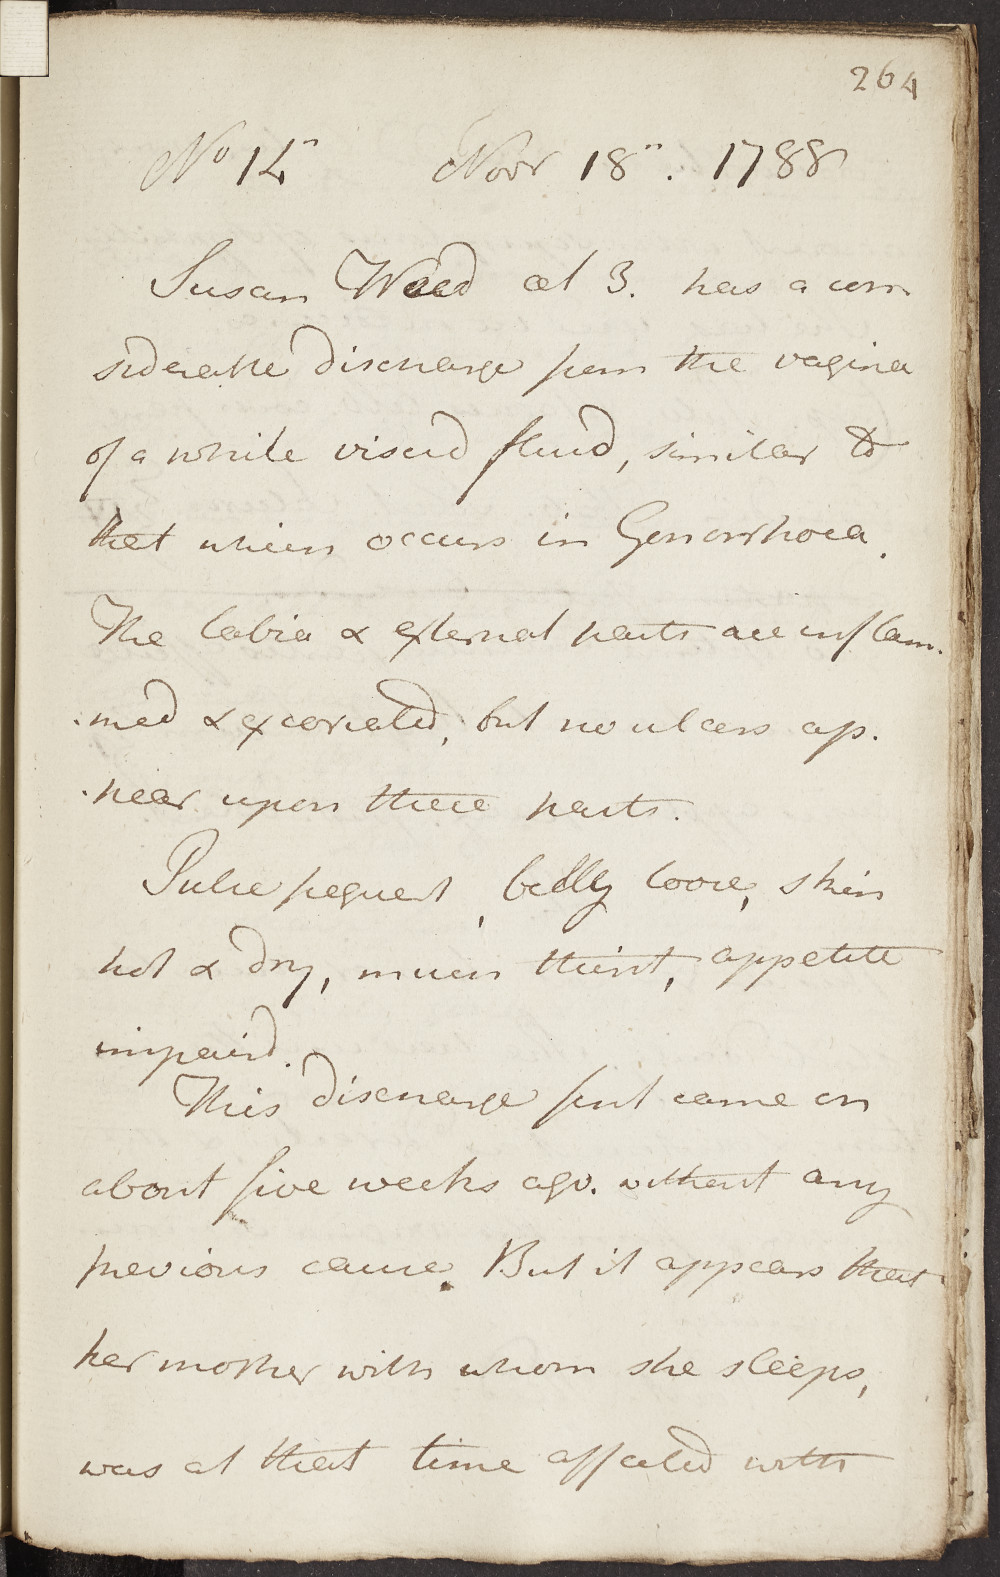 264
No 14" Novr 18". 1788
Susan Weed æt 3. has a con
siderable discharge from the vagina
of a white viscid fluid, similar to
that which occurs in Gonorrhoea.
The labia & external parts are inflam.
.med & excoriated, but no ulcers ap.
.pear upon these parts.
Pulse frequent, belly loose, skin
hot & dry, much thirst, appetite
impaird.
This discharge first came on
about five weeks ago. without any
previous cause. But it appears that
her mother with whom she sleeps,
was at that time affected with